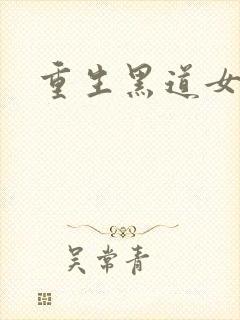 重生黑道女
吴常青